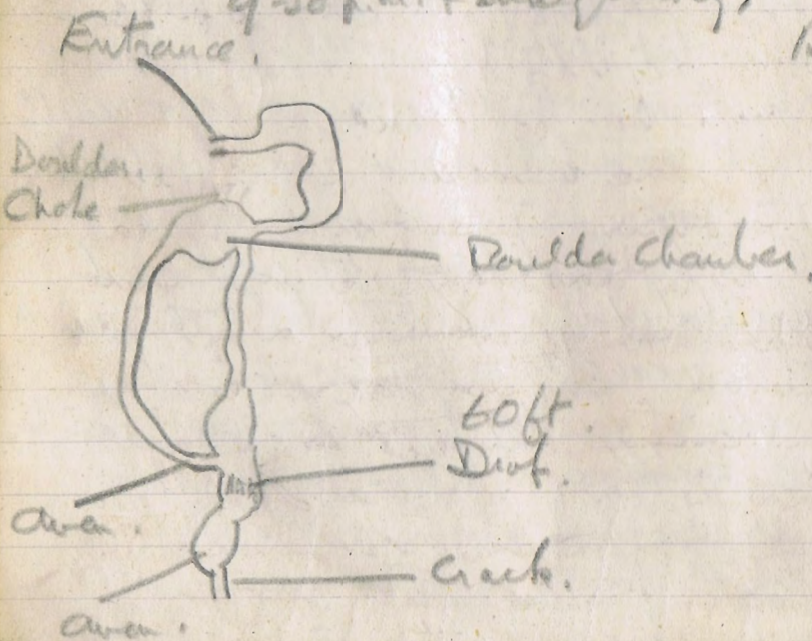 9-30 p.m.
Entrance.
Boulder
Choke
Boulder Chamber.
60ft
Drop.
Aven.
Crack.
Aven.